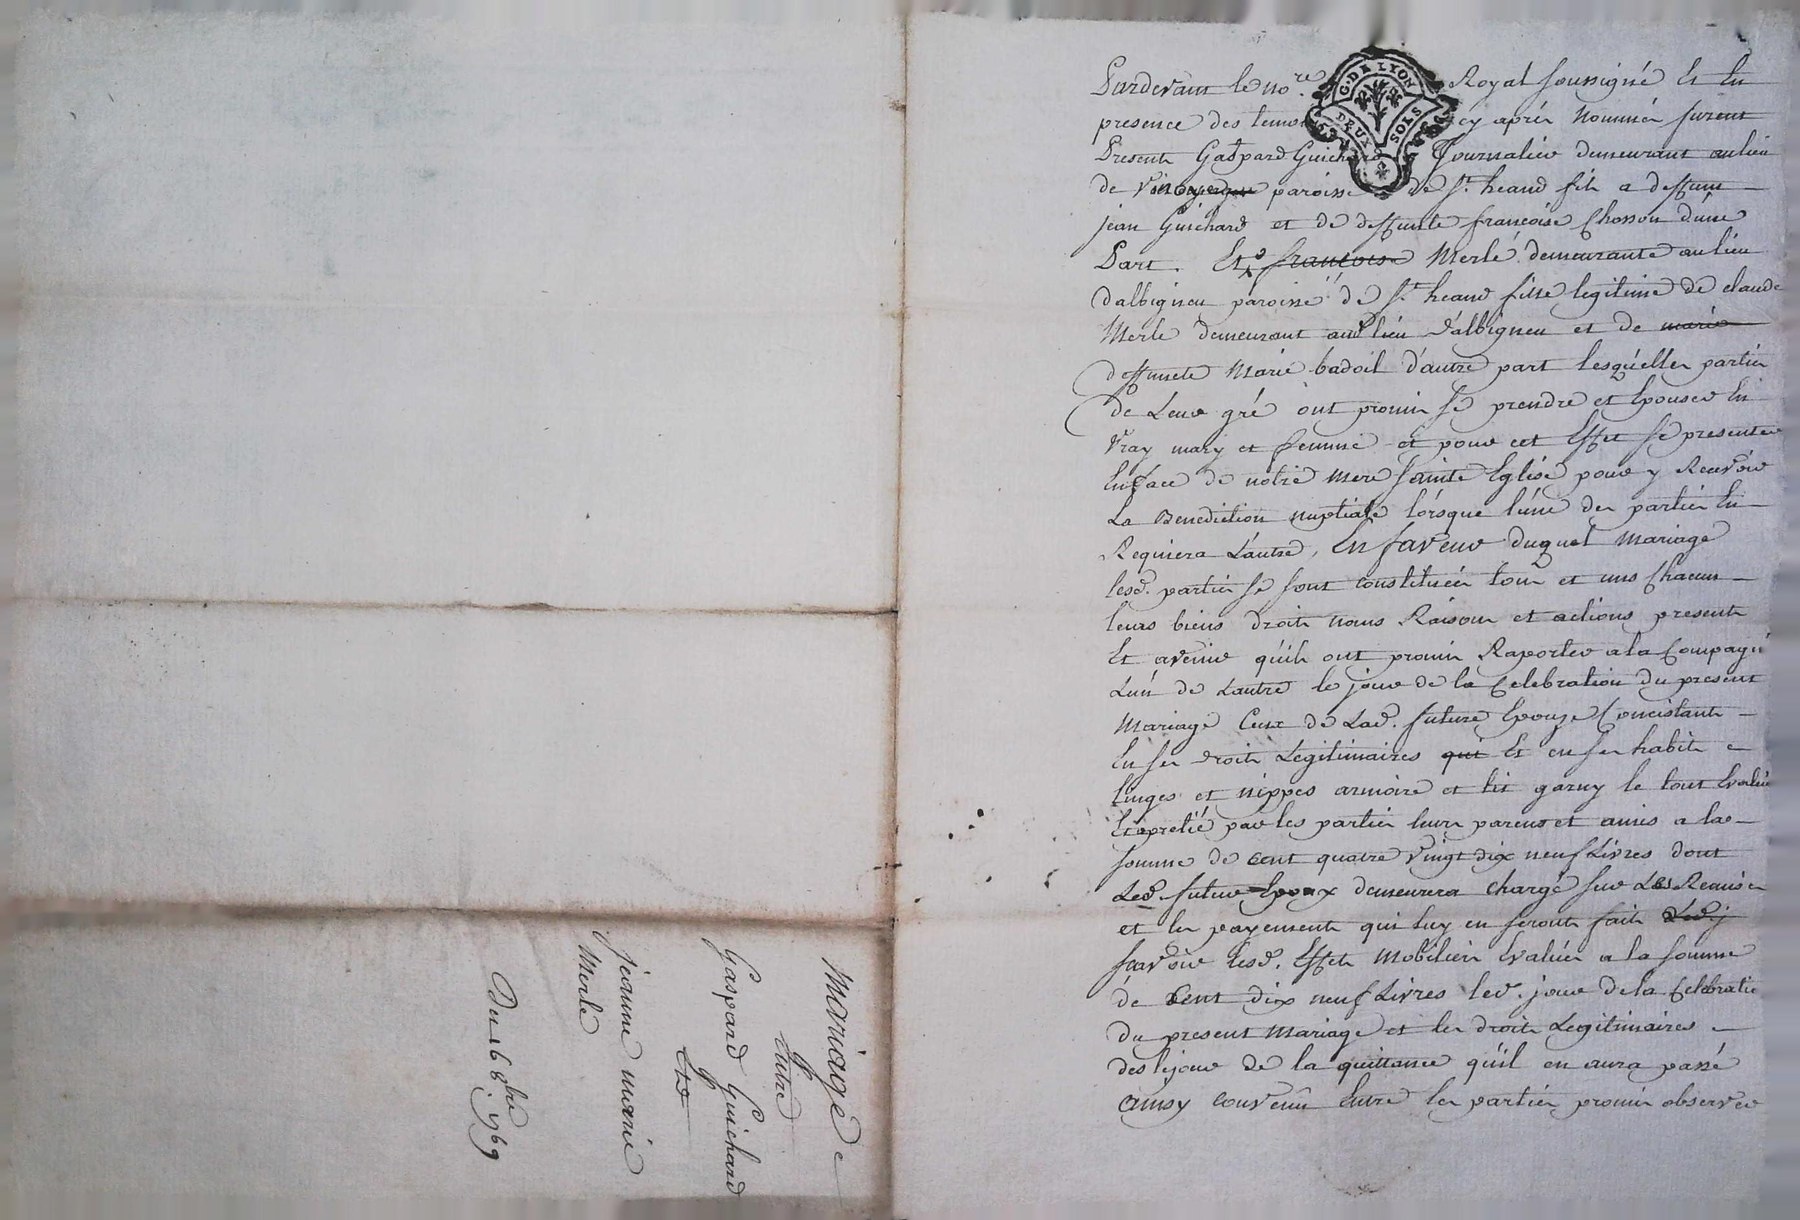 Pardevant le no.re Royal soussigné Et En
presence des temo cy aprés nommés furent
Presents Gaspard Guichard Journalier demeurant au lieu
de paroisse de St. heand fils a deffunt
jean Guichard et de deffunte francoise Chosson d'une
Part. Et francoise Merle demeurante au lieu
dalbigneu paroisse de St. heand fille legitime de claude
Merle demeurant aud. lieu d'albigneu et de marie
deffuncte Marie badoil d'autre part lesquelles parties
de Leur gré ont promis se prendre et Epouser En
vray mary et femme et pour cet Effet se presenter
En face de notre mere sainte Eglise pour y Recevoir
La Benediction nuptiale lórsque l'úne des parties En
Requiera L'autre, En faveur duquel Mariage
lesd. parties se sont constituées tous et uns Chacuns
leurs biens droits noms Raisons et actions presents
Et avenir qúils ont promis Raporter a la Compagie
L'un de Lautre le jour de la Celebration du present
Mariage Ceux de Lad. future Epouze Concistants
En ses droits Legitimaires qui Et en ses habits
linges et nippes armoire et lit garny le tout Evalué
Et apretié par les parties leurs parens et amis a la
somme de cent quatre vingt dix neuf Livres dont
Led. futur Epoux demeurera chargé sur Les Remises
et les payements qui luy en seront faits Led. j
scavoir lesd. Effets Mobiliers Evalués a la somme
de Cent dix neuf Livres led. jour de la Celebratio
du present Mariage et les droits Legitimaires
des le jour de la quittance qúil en aura passé
ainsy convenû Entre les parties promis observer
Mariage
Entre
Gaspard Guichard
Et
jeanne marie
Merle
Du 16 8bre. 1769
G. DE LYON
DEUX SOLS